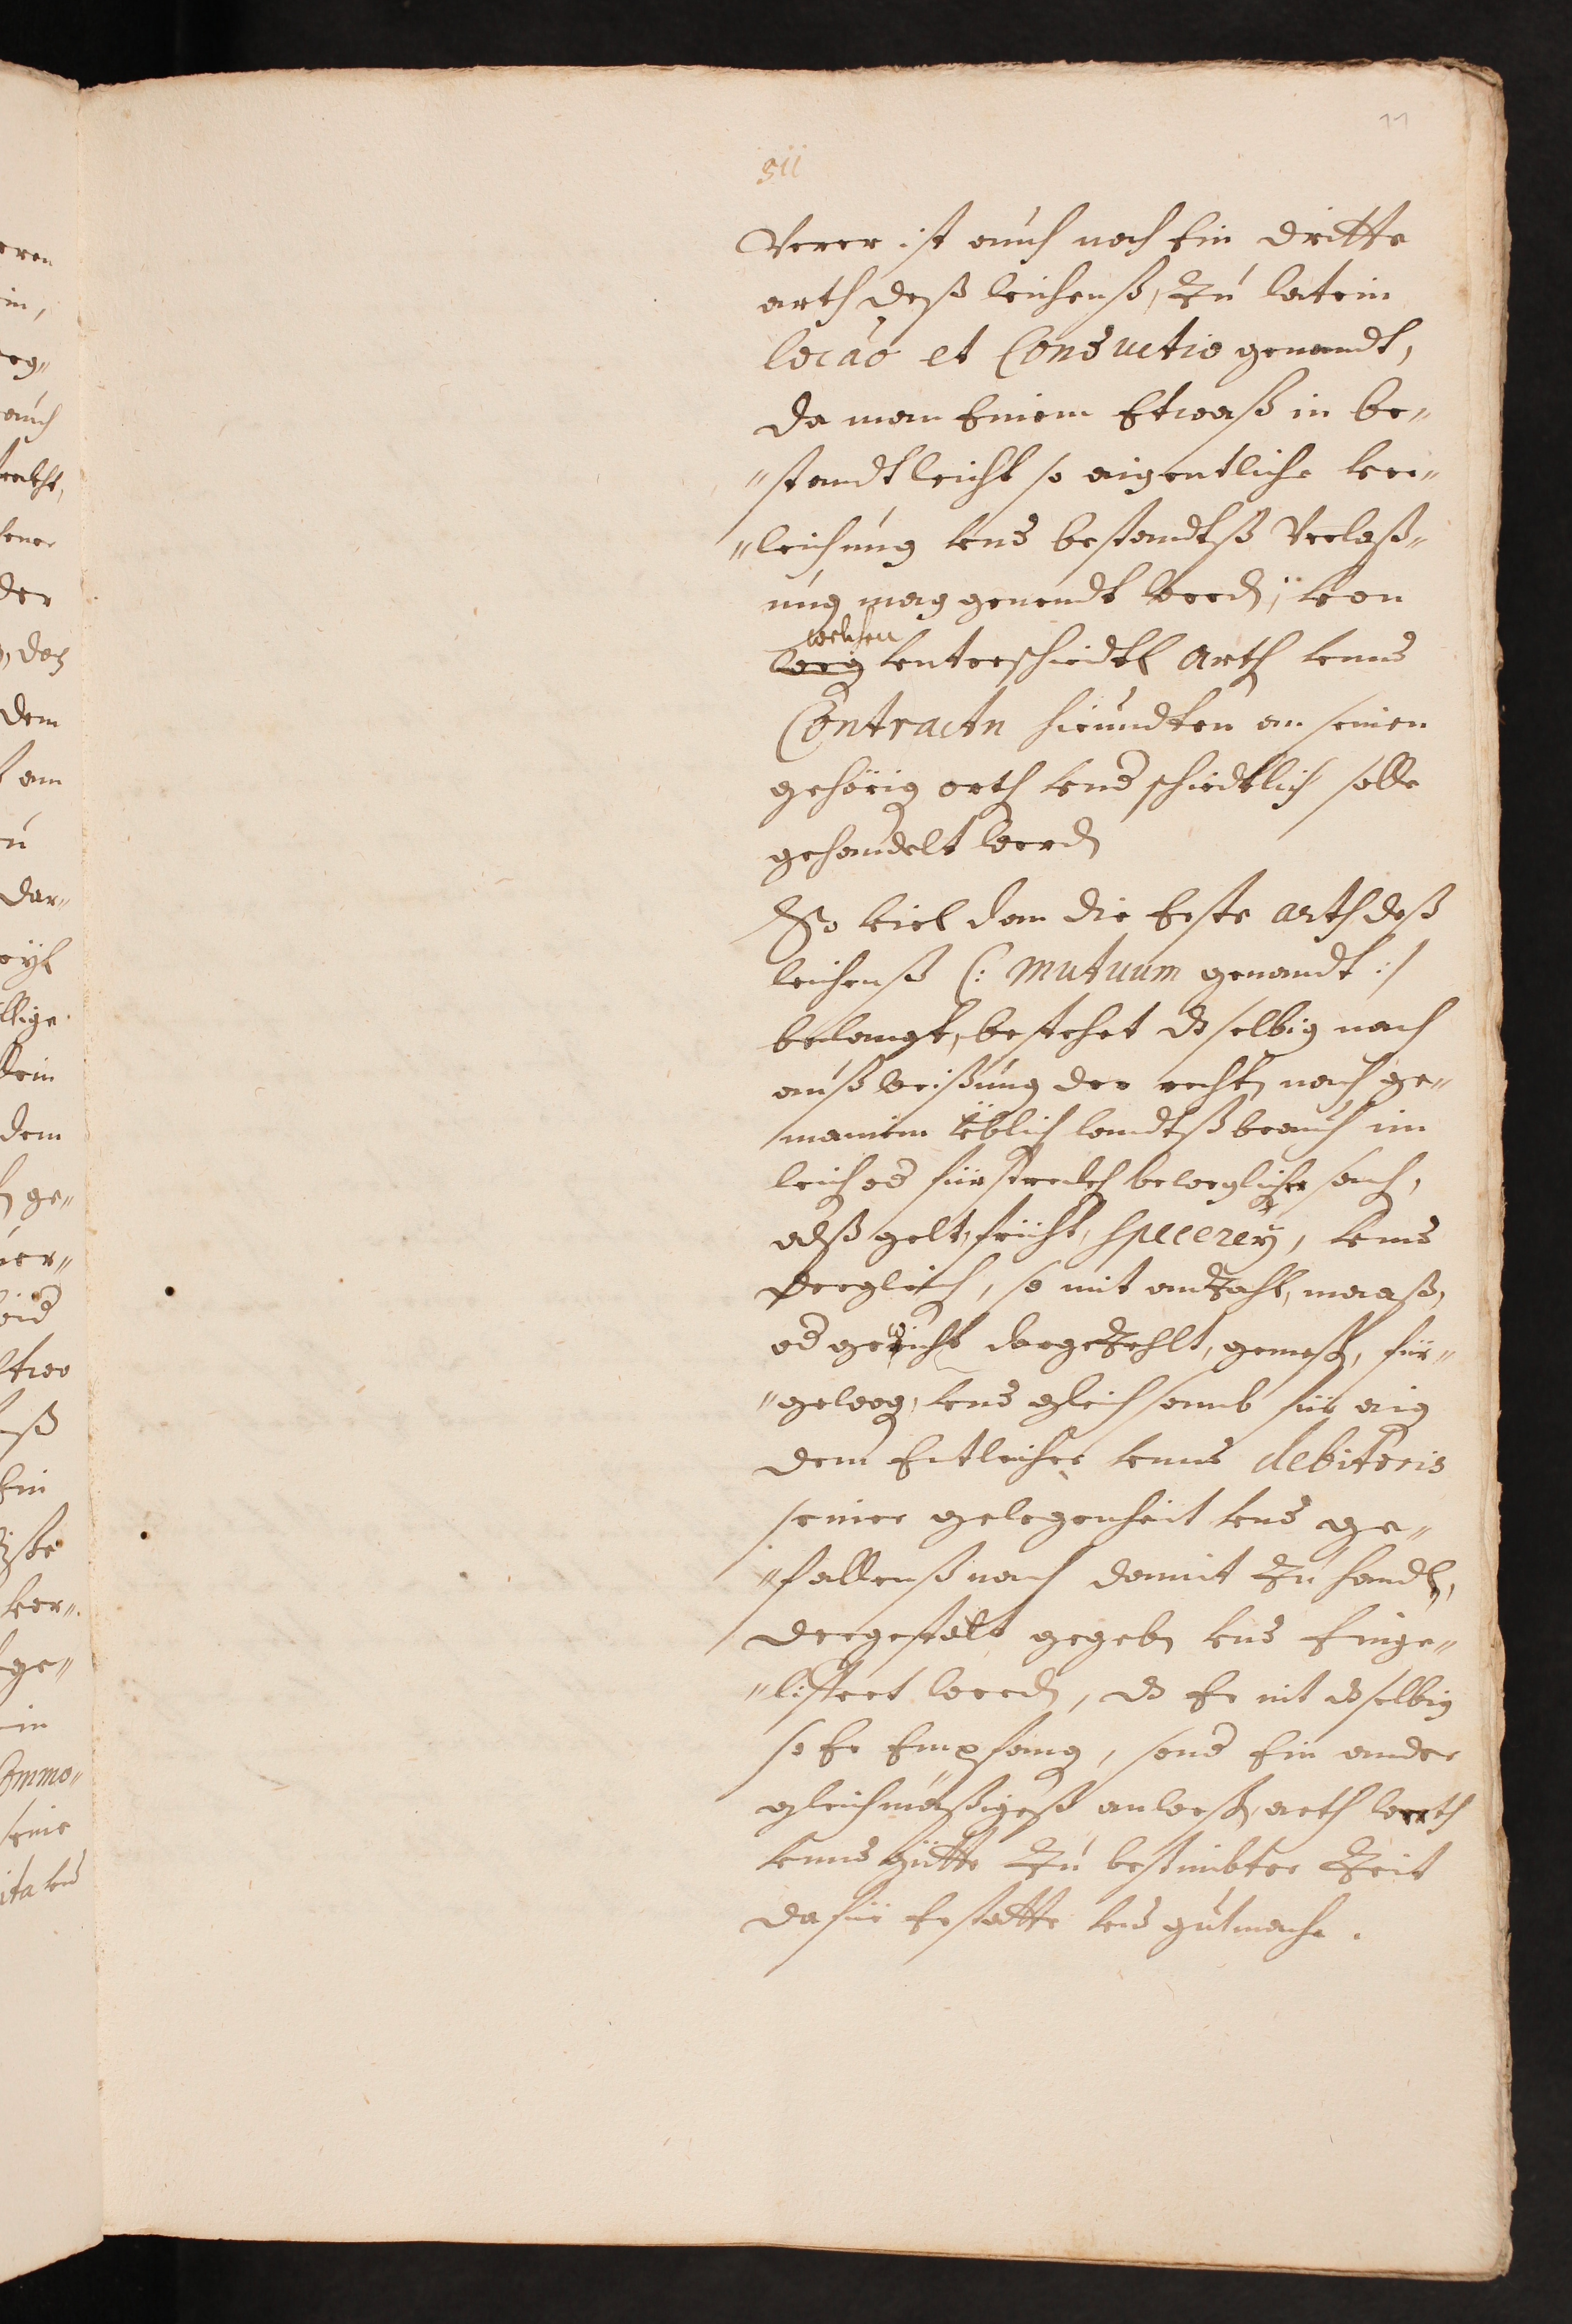 11
§ii
Verer ist auch noch Ein dritte
arth deß leihenß, Zu latein
locão et Conductio genandt,
da man Einem Etwaß in be„
„standt leicht so aigentliche ver„
„leihung vnd bestandtß Verlaß„
ung mag genendt werdn, von
welchen
unterschiedtl arth vnnd
Contractn hieundten an seinen
gehörig orth vnd schiedtlich solle
gehandelt werdn
So viel dan die Erste arth deß
leihenß (: mutuum genandt :/
belangt, bestehet dselbig nach
außweißung der rechtn nach ge„
mainem üblich landtßbrauch im
leich od fürstreckh beweglicher sach,
alß gelt, frücht, specereÿ, vnnd
derglich, so mit anZahl, maaß,
od gewicht dargeZehlt, gemeßn, für„
„gewog, vnd gleichsamb für aig
dem Entleiher vnnd debitoris
seiner gelegenheit vnd ge„
„fallenß nach damit Zu handln,
dergestalt gegebn vnd Einge„
„liffert werdn, ds Er nit dselbig
so Er Empfang, sond Ein ander
gleichmäßigeß anweßn, arth werth
vnnd gütte Zu bestimbter Zeit
dafür Erstatte vnd gutmache.